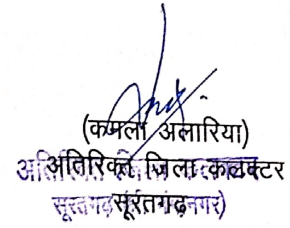 (कमला अलारिया)
अतिरिक्त जिला कलक्टर
सूरतगढ़